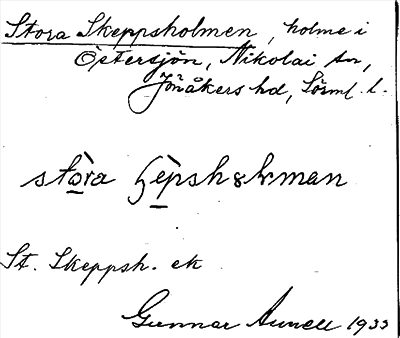 Stora Skeppsholmen, holme i
Östersjön, Nikolai sn,
Jönåkers hd, Södml. l.
stòra
St. Skeppsh. ek
Gunnar Aunell 1933